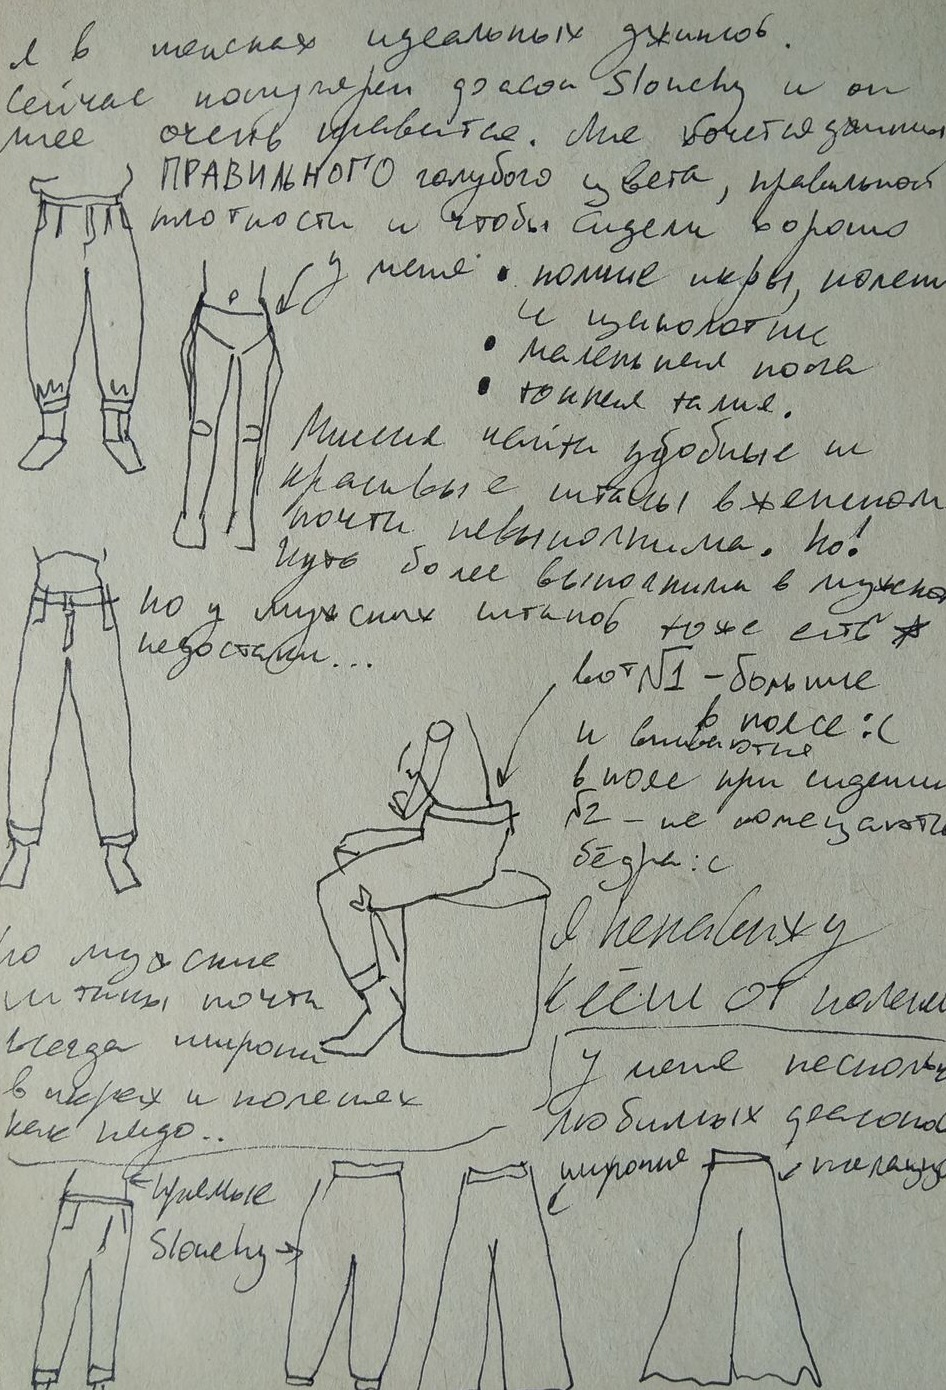 Я в поисках идеальных джинсов.
Сейчас популярен фасон Slouchy и он
мне очень нравится. Мне хочется
ПРАВИЛЬНОГО голубого цвета, правильной
плотности и чтобы сидели хорошо
у меня • полные икры, колени
и щиколотки
• маленькая попа
• тонкая талия.
Миссия найти удобные и
красивые штаны в женском
почти невыполнима. Но!
Чуть более выполнима в мужском
но у мужских штанов тоже есть
недостатки...
вот №1 - большие
в поясе :(
и впиваются
в поясе при сидении
№2 - не помещаются
бёдра :с
Я ненавижу
клёш от колена
но мужские
штаны почти
всегда широки
в икрах и коленях
как надо..
У меня несколько
любимых фасонов
прямые
широкие
Slouchy →